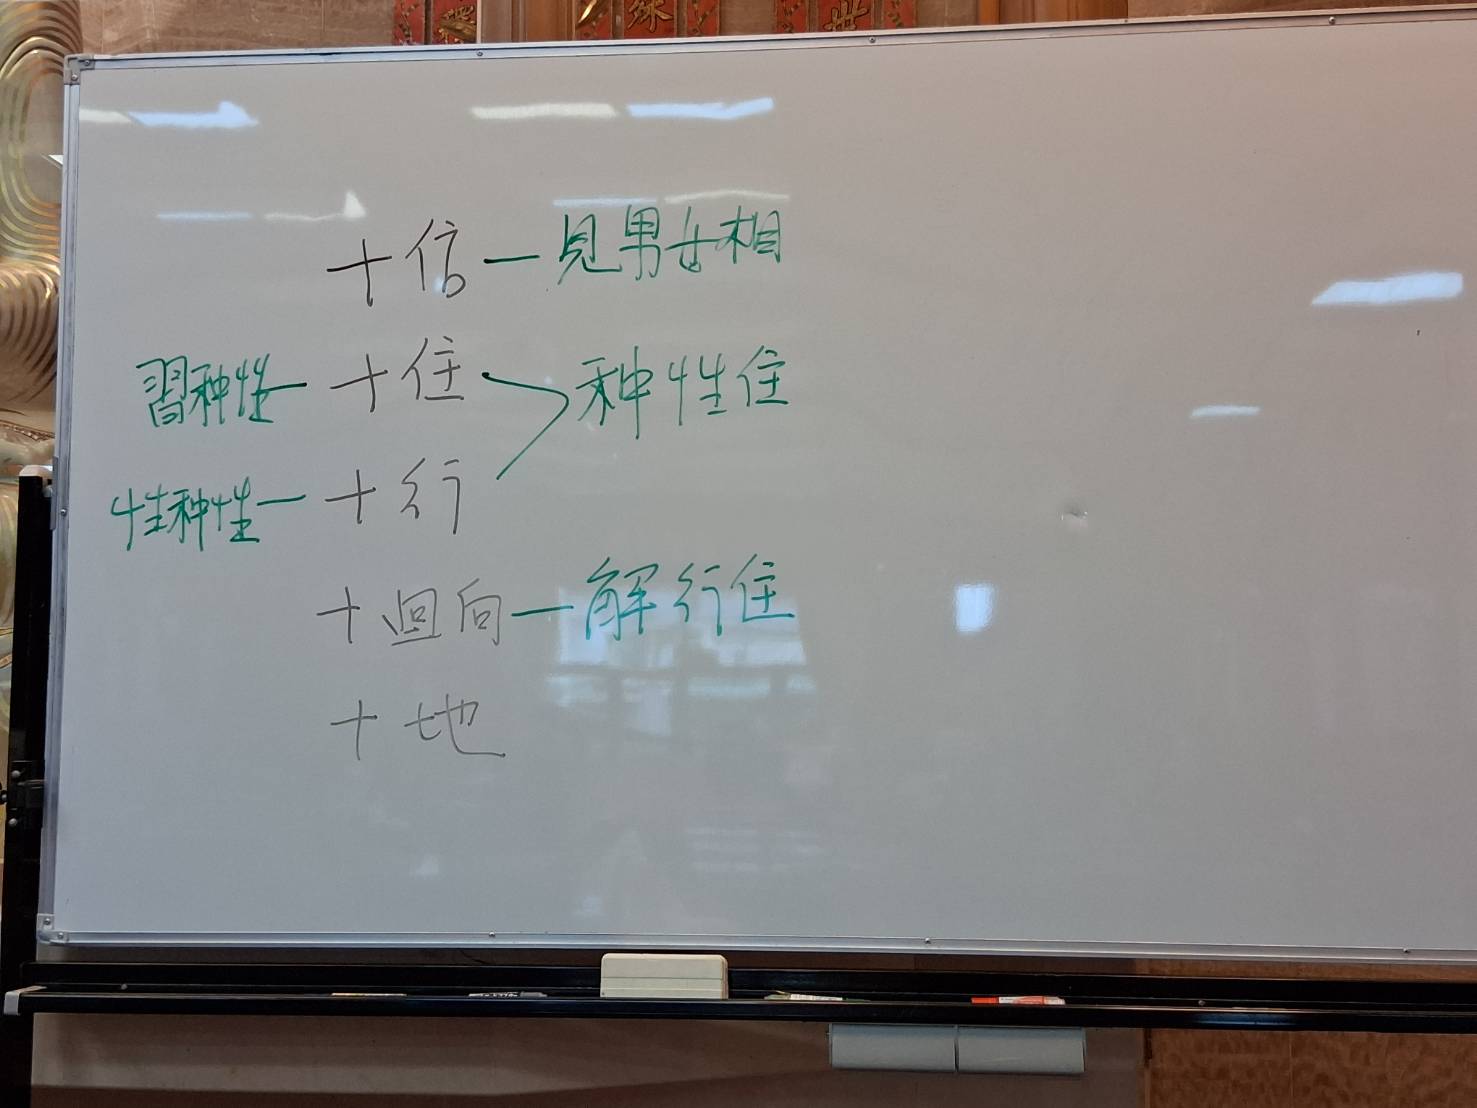 十信—見男女相
習种性—十住 种性住
性种性—十行
十迴向—解行住
十地